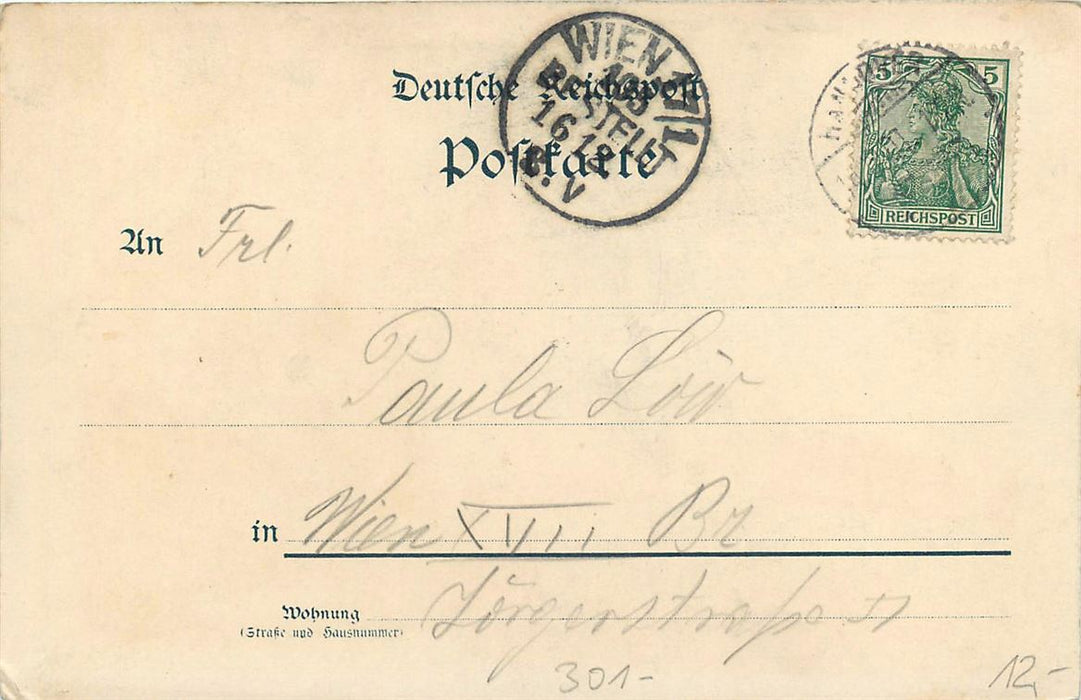 WIEN 17/1
BESTELLT
16 12
8. V
Deutsche Reichspost
Postkarte
5 5
REICHSPOST
An Frl.
Paula Löw
in Wien XVIII Bz
Wohnung Jörgerstraße
(Straße und Hausnummer)
301-
12,-